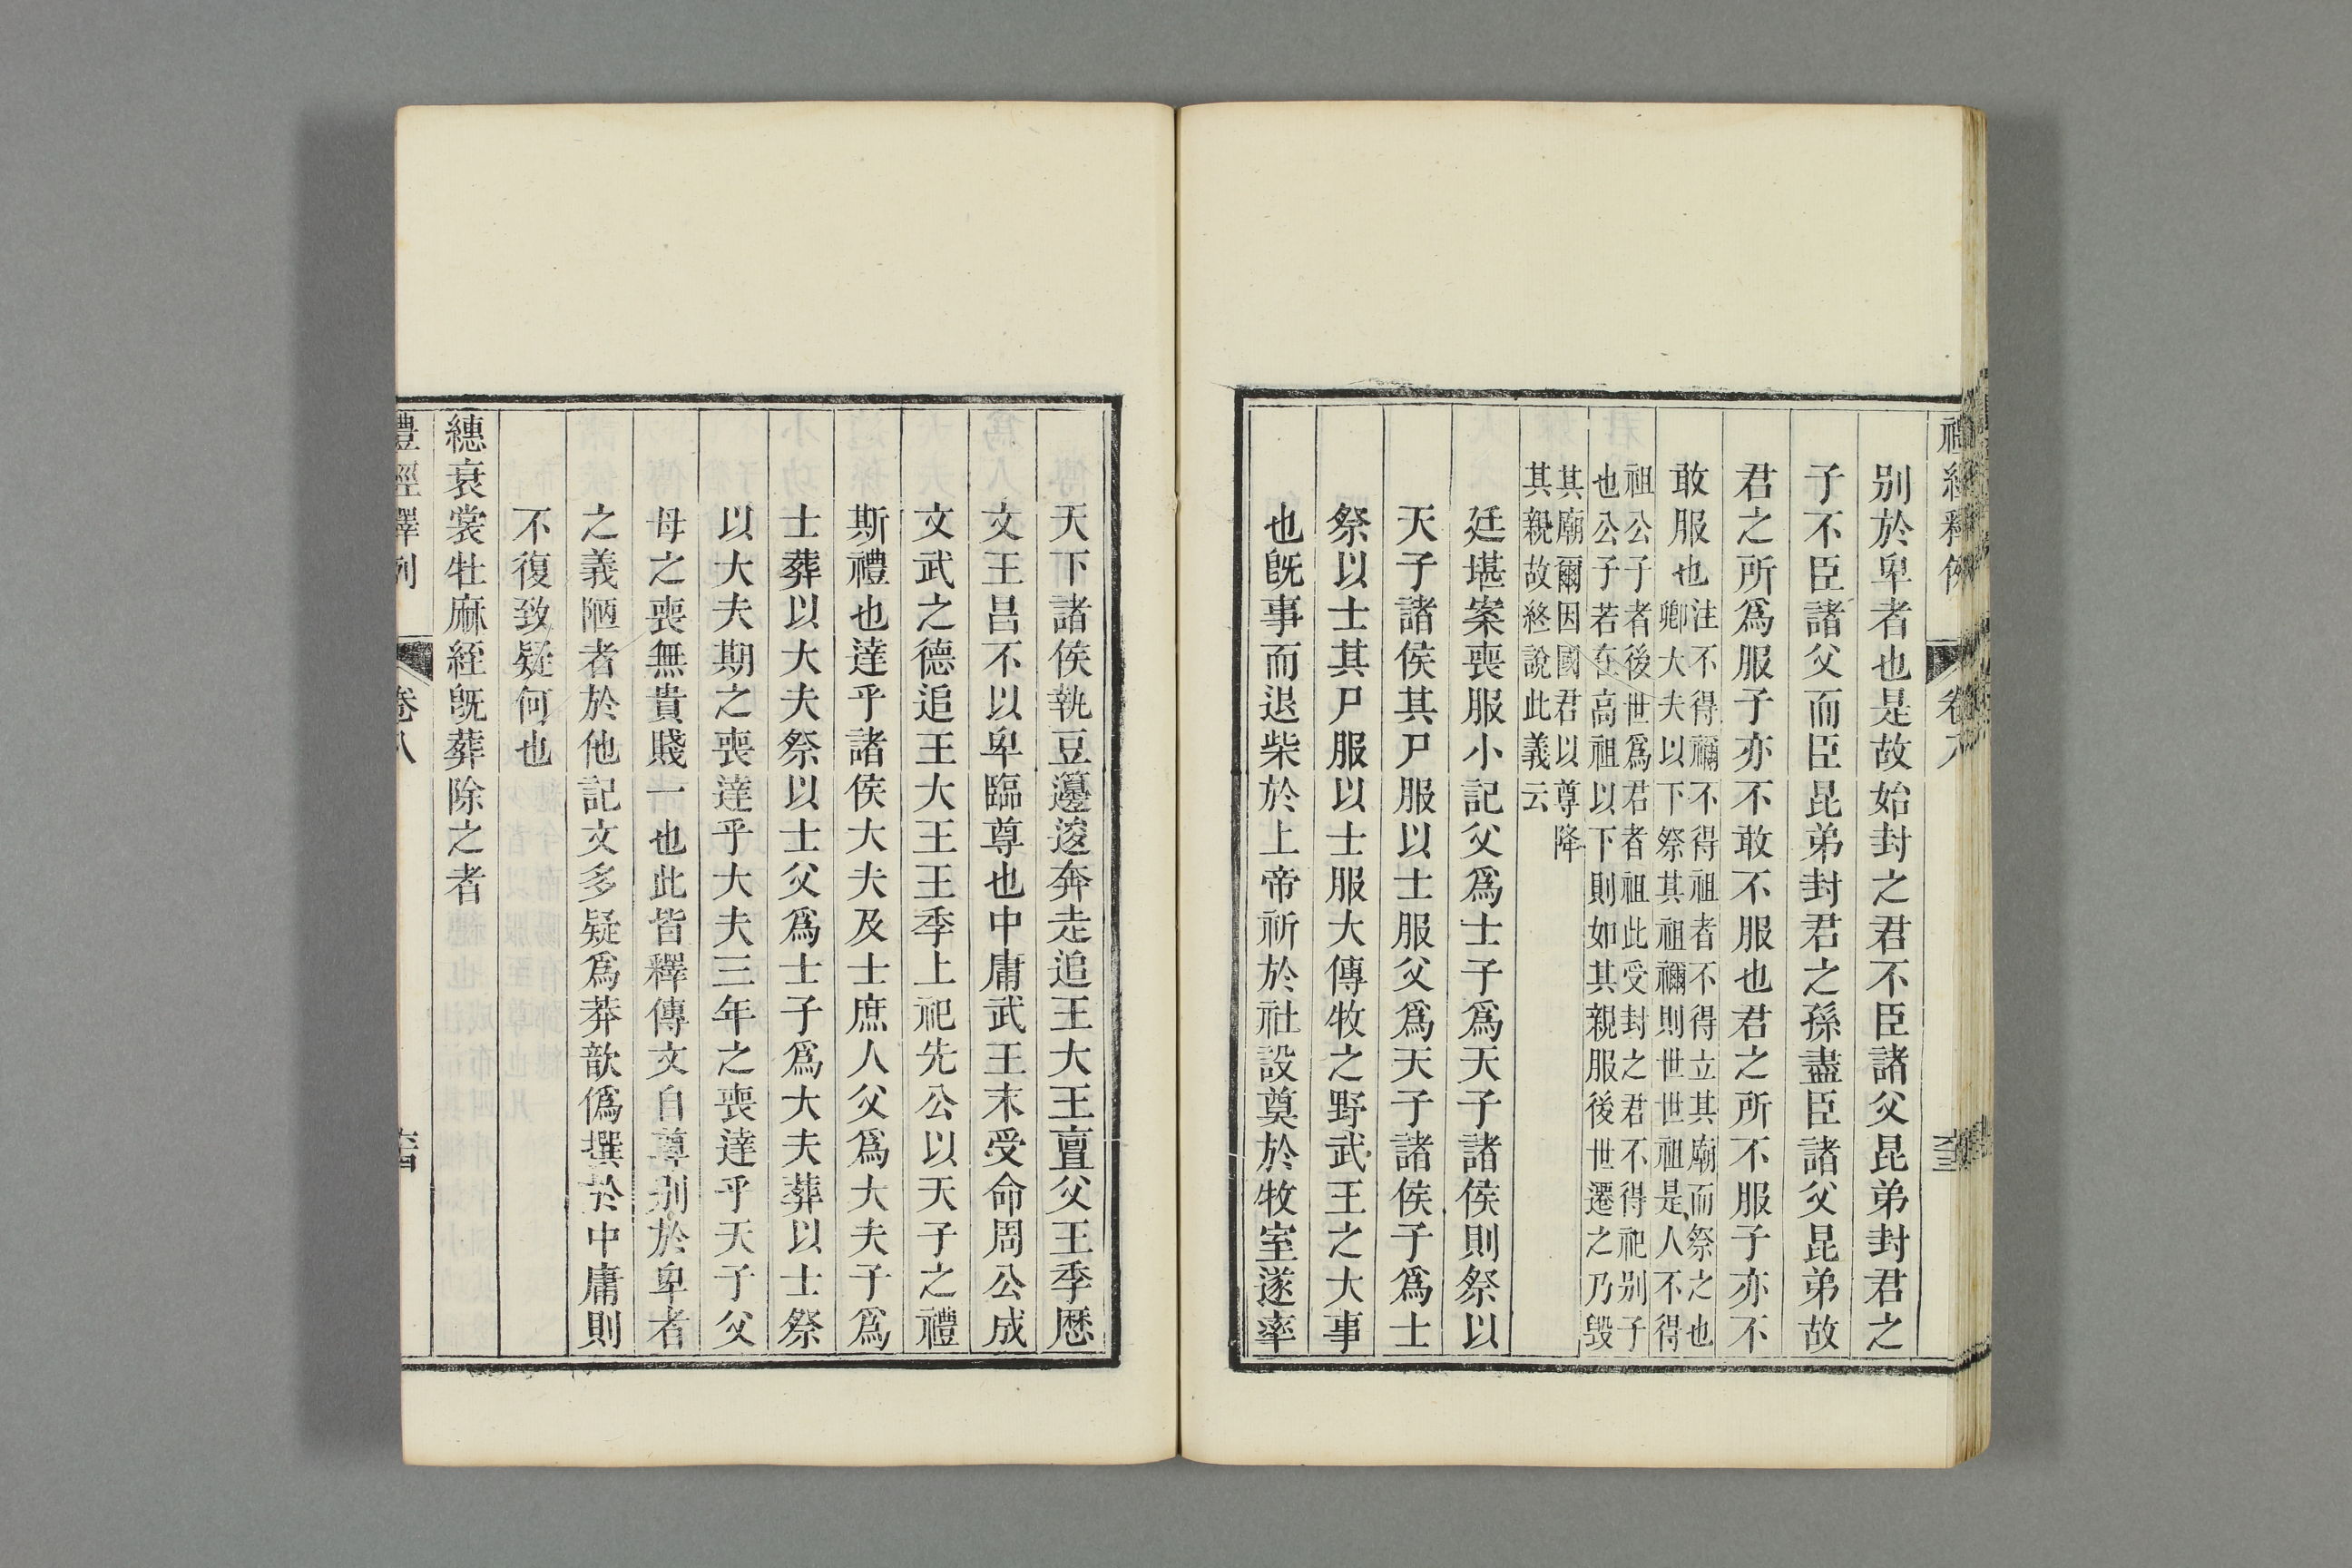 禮經釋例
卷八
別於卑者也是故始封之君不臣諸父昆弟封君之
子不臣諸父而臣昆弟封君之孫盡臣諸父昆弟故
君之所爲服子亦不敢不服也君之所不服子亦不
敢服也注不得禰不得祖者不得立其廟而祭之也
卿大夫以下祭其祖禰則世世祖是人不得
祖公子者後世爲君者祖此受封之君不得祀别子
也公子若在高祖以下則如其親服後世遷之乃毀
其廟爾因國君以尊降
其親故終說此義云
廷堪案喪服小記父爲士子爲天子諸侯則祭以
天子諸侯其尸服以士服父爲天子諸侯子爲士
祭以士其尸服以士服大傳牧之野武王之大事
也旣事而退柴於上帝祈於社設奠於牧室遂率
天下諸侯執豆籩逡奔走追王大王亶父王季歷
文王昌不以卑臨尊也中庸武王末受命周公成
文武之德追王大王王季上祀先公以天子之禮
斯禮也達乎諸侯大夫及士庶人父爲大夫子爲
士葬以大夫祭以士父爲士子爲大夫葬以士祭
以大夫期之喪達乎大夫三年之喪達乎天子父
母之喪無貴賤一也此皆釋傳文自尊别於卑者
之義陋者於他記文多疑爲莽歆僞撰於中庸則
不復致疑何也
繐衰裳牡麻絰旣葬除之者
禮經釋例
卷八